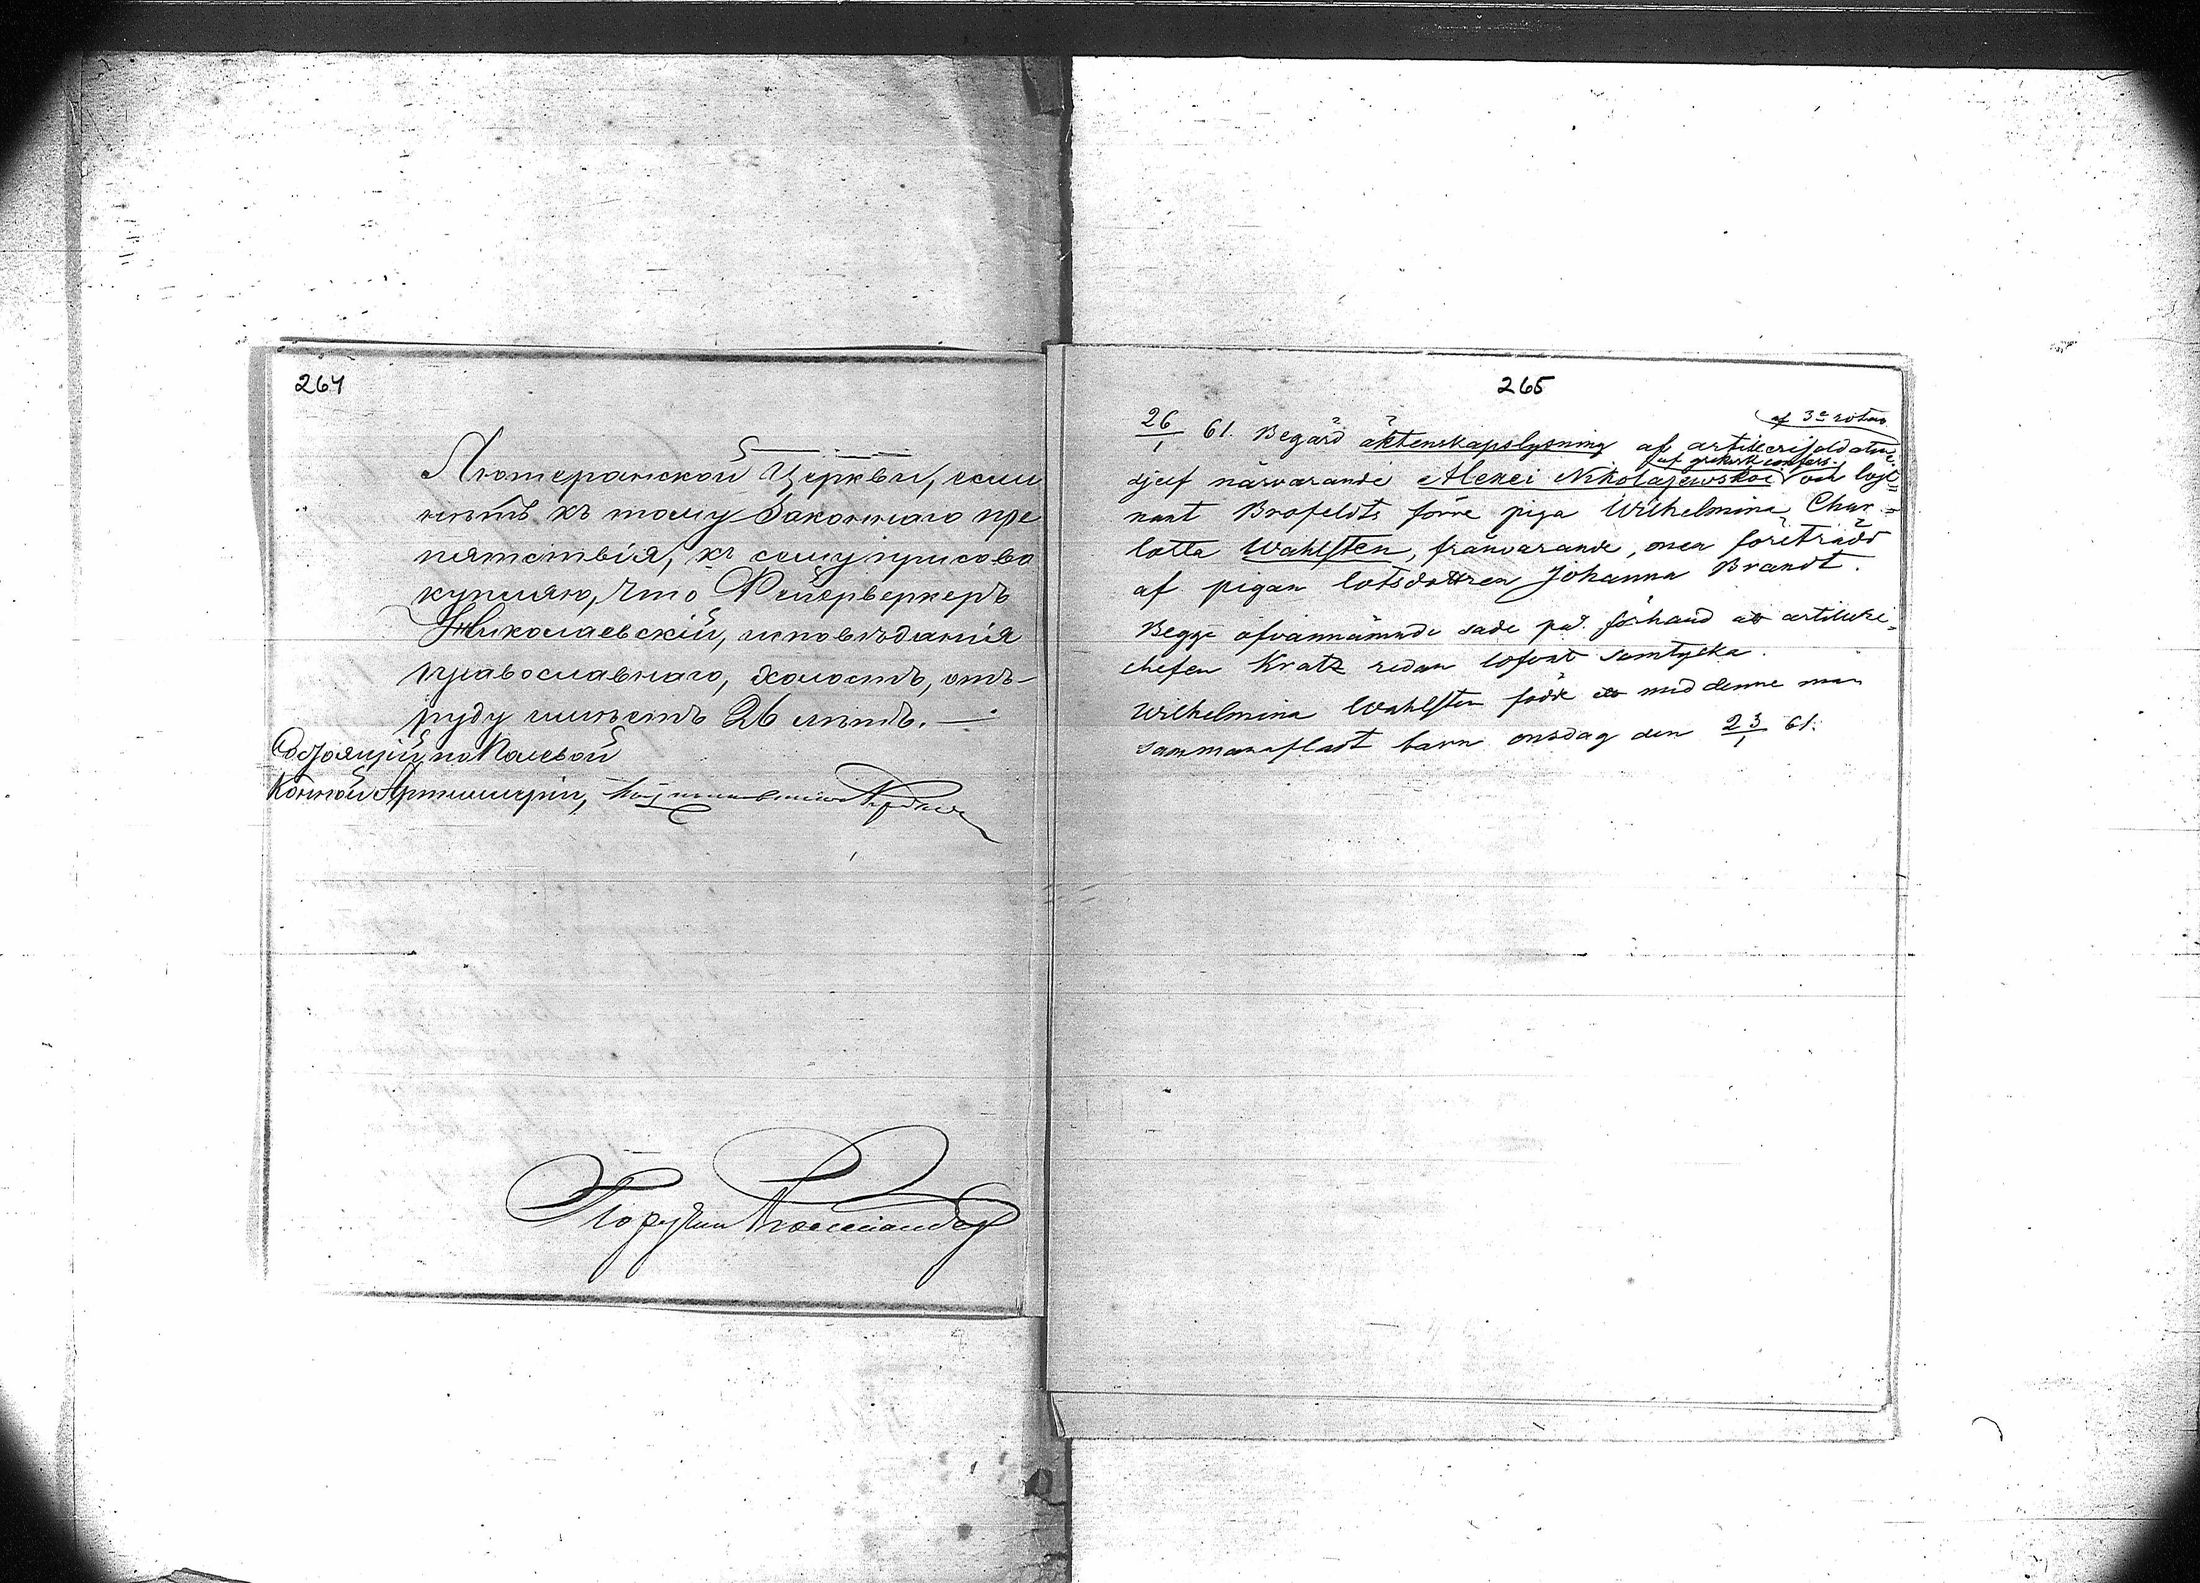 264
Лютеранской Церкви, если
нѣтъ къ тому Законнаго пре
пятствія, къ сему присово
купляю, что Фейерверкеръ
Николаевскій, исповѣданія
православнаго, холостъ, отъ-
роду имѣетъ 26 лѣтъ. —
Состоящій по Полевой
Конной Артиллеріи,
Поручикъ
265
af 3e rotan
26/1 61. Begärd äktenskapslysning af artillerisoldaten
af grekisk confess.
sjelf närvarande Alexei Nikolajewskoi och löjt=
nant Brofeldts förre piga Wilhelmina Char=
lotta Wahlsten, frånvarande, men företrädd
af pigan lotsdottren Johanna Brandt.
Begge ofvannämnde sade på förhand att artilleri=
chefen Kratz redan lofvat samtycka.
Wilhelmina Wahlsten födde ett med denne man
sammanafladt barn onsdag den 23/1 61.